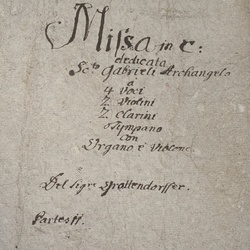 Missa in C:
dedicata
Scto Gabrieli Archangelo
a
4 Voci
2 Violini
2 Clarini
Tympano
Con
Organo e Violone
Del Sigre Grattendorffer.
Partes 11.